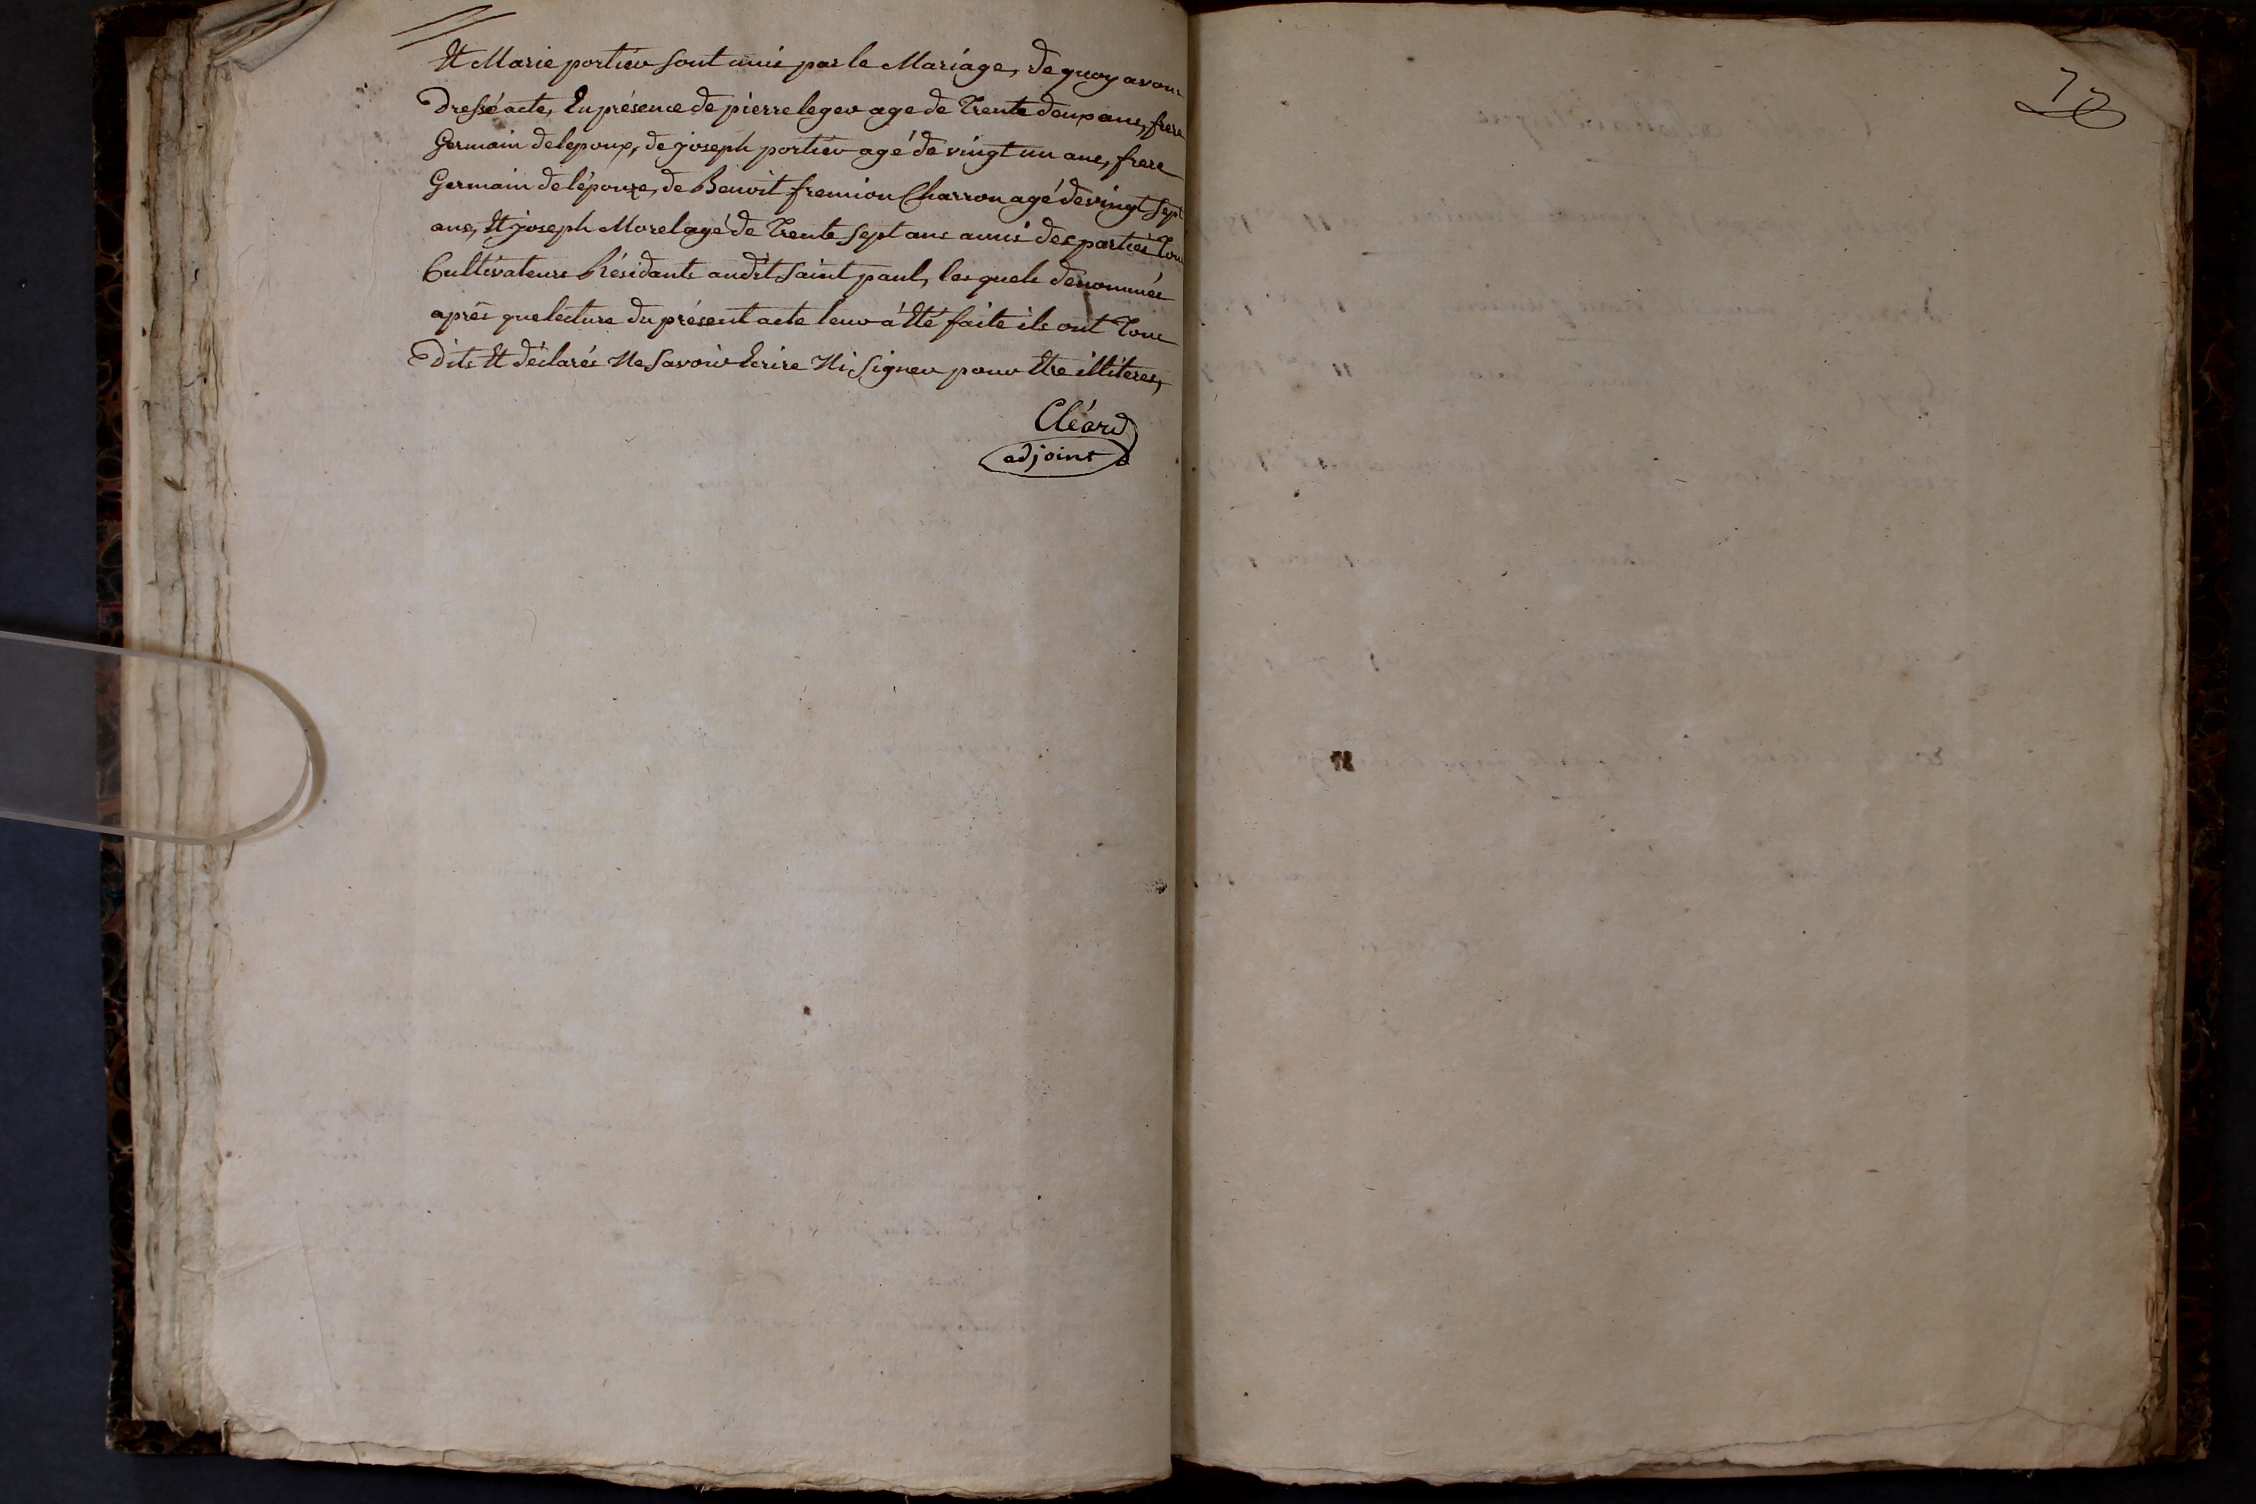 Et Marie portier sont unis par le Mariage, de quoy avons
dressé acte, En présence de pierre leger age de Trente deux ans, frere
Germain de lepoux, de joseph portier agé de vingt un ans, frere
Germain de lépouze, de Benoit fremion Charron agé de vingt sept
ans, Et joseph Morel agé de Trente sept ans amis des parties Tous
Cultivateurs Résidants audit saint paul, les quels denommés
après que lecture du présent acte leur a Eté faite ils ont Tous
dits Et déclarés Ne savoir Ecrire Ni signer pour Etre illiteres,
Cléard
adjoint